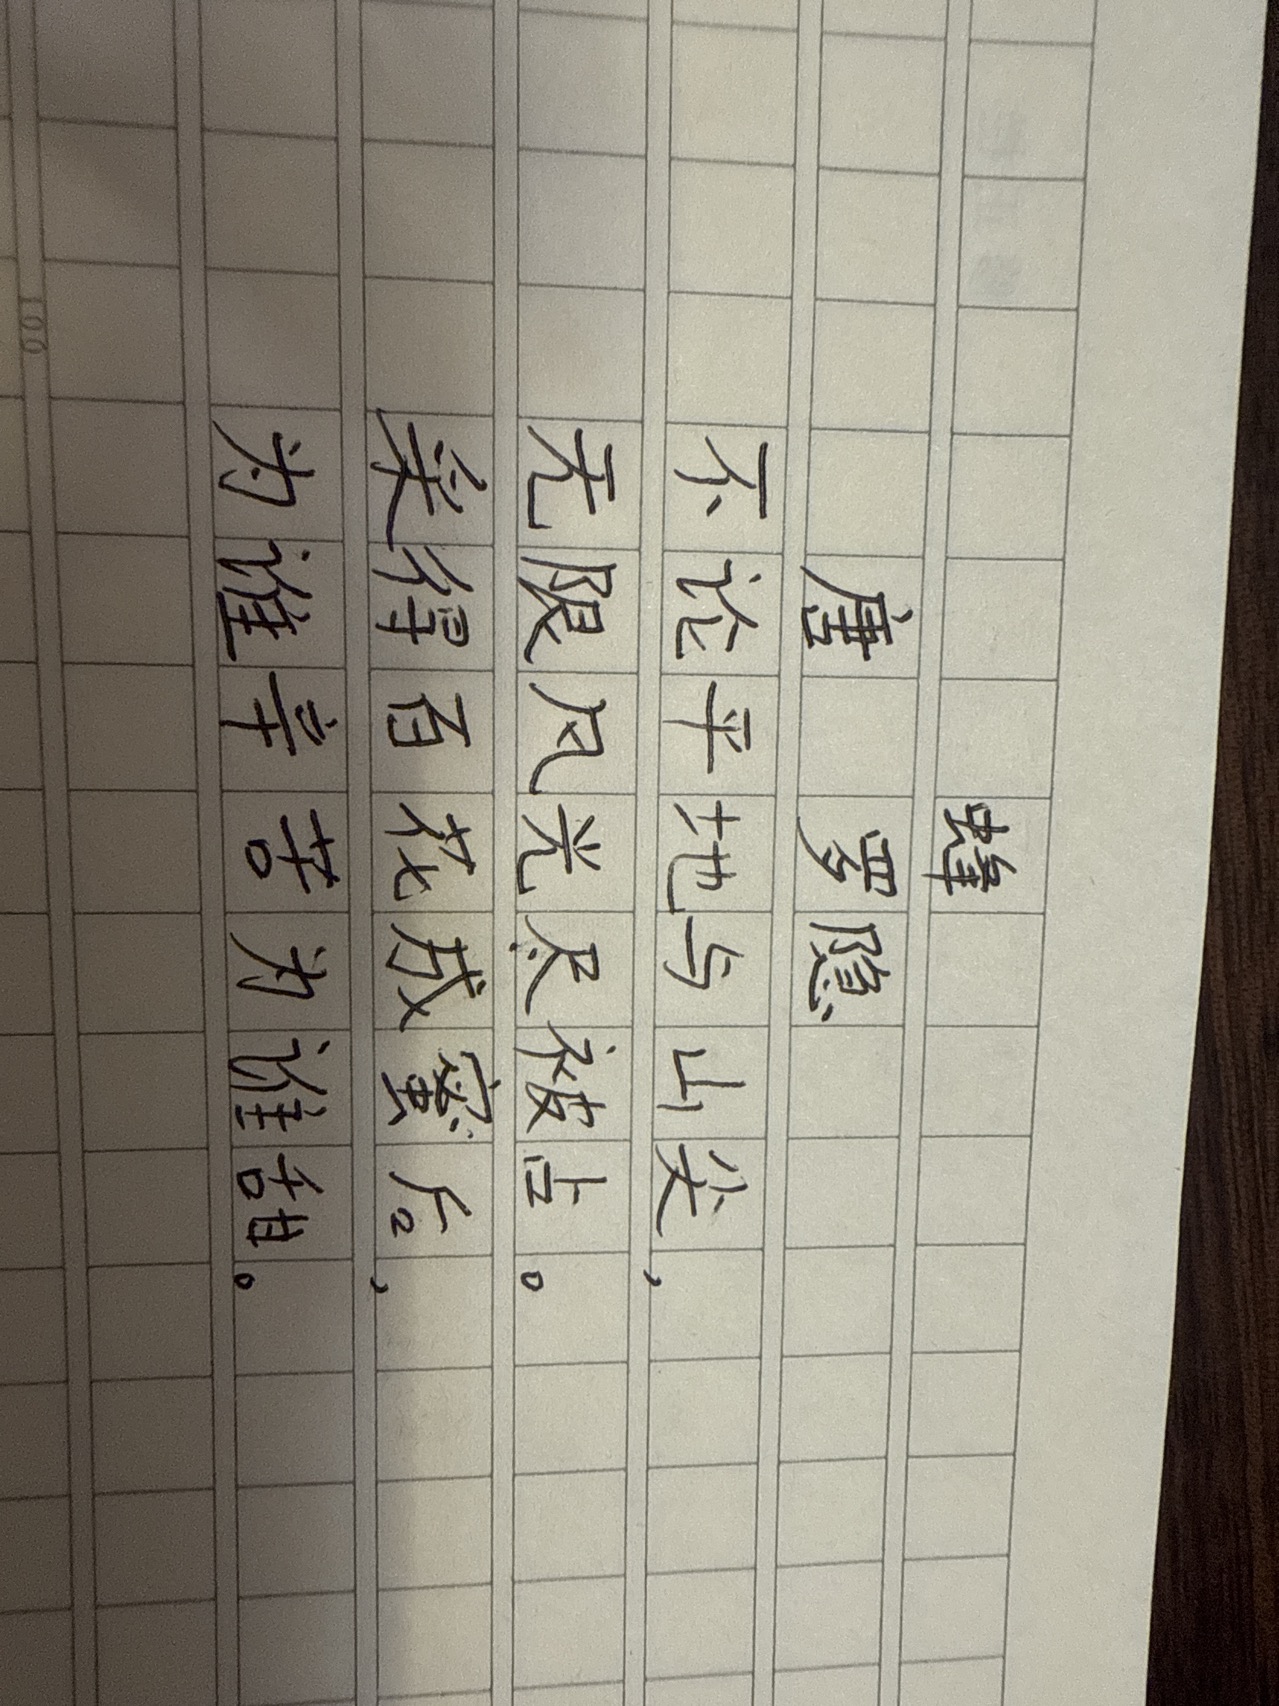 蜂
唐 罗隐
不论平地与山尖，
无限风光尽被占。
采得百花成蜜后，
为谁辛苦为谁甜。
100